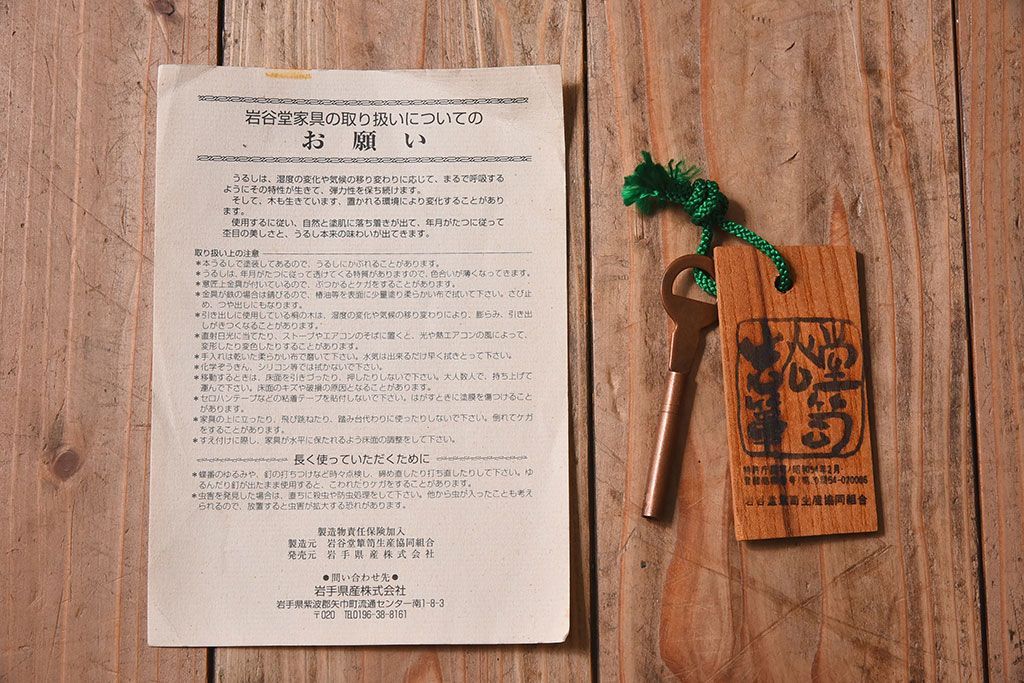 岩谷堂家具の取り扱いについての
お願い
うるしは、湿度の変化や気候の移り変わりに応じて、まるで呼吸する
ようにその特性が生きて、弾力性を保ち続けます。
そして、木も生きています、置かれる環境により変化することがあり
ます。
使用するに従い、自然と塗肌に落ち着きが出て、年月がたつに従って
杢目の美しさと、うるし本来の味わいが出てきます。
取り扱い上の注意
*本うるしで塗装してあるので、うるしにかぶれることがあります。
*うるしは、年月がたつに従って透けてくる特質がありますので、色合いが薄くなってきます。
*意匠上金具が付いているので、ぶつかるとケガをすることがあります。
*金具が鉄の場合は錆びるので、椿油等を表面に少量塗り柔らかい布で拭いて下さい。さび止
め、つや出しにもなります。
*引き出しに使用している桐の木は、湿度の変化や気候の移り変わりにより、膨らみ、引き出
しがきつくなることがあります。
*直射日光に当てたり、ストーブやエアコンのそばに置くと、光や熱エアコンの風によって、
変形したり変色したりすることがあります。
*手入れは乾いた柔らかい布で磨いて下さい。水気は出来るだけ早く拭きとって下さい。
*化学ぞうきん、シリコン等では拭かないで下さい。
*移動するときは、床面を引きづったり、押したりしないで下さい。大人数人で、持ち上げて
運んで下さい。床面のキズや破損の原因となることがあります。
*セロハンテープなどの粘着テープを貼付しないで下さい。はがすときに塗膜を傷つけること
があります。
*家具の上に立ったり、飛び跳ねたり、踏み台代わりに使ったりしないで下さい。倒れてケガ
をすることがあります。
*すえ付けに際し、家具が水平に保たれるよう床面の調整をして下さい。
長く使っていただくために
*蝶番のゆるみや、釘の打ちつけなど時々点検し、締め直したり打ち直したりして下さい。ゆ
るんだり釘が出たまま使用すると、こわれたりケガをすることがあります。
*虫害を発見した場合は、直ちに殺虫や防虫処理をして下さい。他から虫が入ったことも考え
られるので、放置すると虫害が拡大する恐れがあります。
製造物責任保険加入
製造元 岩谷堂箪笥生産協同組合
発売元 岩手県産株式会社
●問い合わせ先●
岩手県産株式会社
岩手県紫波郡矢巾町流通センター南1-8-3
〒020 TEL0196-38-8161
岩谷堂箪笥
特許庁 昭和54年2月
54-070086
岩谷堂箪笥生産協同組合